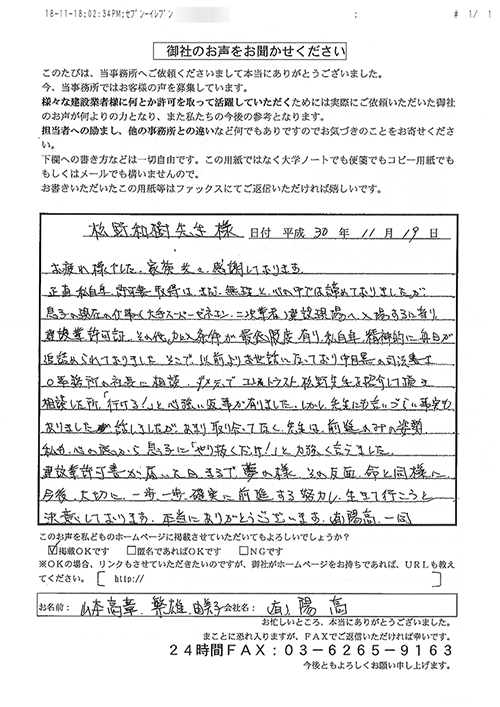 18-11-18;02:34PM;セブンーイレブン ; # 1/ 1
御社のお声をお聞かせください
このたびは、当事務所へご依頼くださいまして本当にありがとうございました。
今、当事務所ではお客様の声を募集しています。
様々な建設業者様に何とか許可を取って活躍していただくためには実際にご依頼いただいた御社
のお声が何よりの力となり、また私たちの今後の参考となります。
担当者への励まし、他の事務所との違いなど何でもありですのでお気づきのことをお寄せくださ
い。
下欄への書き方などは一切自由です。この用紙ではなく大学ノートでも便箋でもコピー用紙でも
もしくはメールでも構いませんので。
お書きいただいたこの用紙等はファックスにてご返信いただければ嬉しいです。
松野和樹先生様 日付 平成 30 年 11 月 19 日
お疲れ様でした。家族共々、感謝しております。
正直、私自身、許可書取得は、まだ、無理と、心の中では諦めておりましたが
息子の現在の仕事で大手スーパーゼネコン、二次業者の建設現場へ、入場するに有り
建設業許可証、その他、加入条件が最低限度有り、私自身、精神的に毎日が
追詰められておりました。そこで、以前よりお世話になっており
の社長に相談、ダメ元でコントラスト松野先生を紹介して頂き
相談した所「行ける!」と心強い返事が有りました。しかし、先生にも言いづらい事実も
ありました 話しましたが、あまり取り合ってなく、先生は、前進のみの姿勢
私も、心の底から息子に「やり抜くだけ!」と力強く言えました。
建設業許可書が届いた日まるで夢の様、その反面、命と同様に
今後、大切に、一歩一歩、確実に前進する努力し、生きて行こうと
決意しております。本当にありがとうございます。(有)陽高 一同
このお声を私どものホームページに掲載させていただいてもよろしいでしょうか?
☑掲載OKです □匿名であればOKです □NGです
※OKの場合、リンクもさせていただきたいのですが、御社がホームページをお持ちであれば、URLも教え
てください。〔 http:// 〕
お名前: 山本高 繁雄 会社名: (有)陽高
お忙しいところ、本当にありがとうございました。
まことに恐れ入りますが、FAXでご返信いただければ幸いです。
24時間FAX:03-6265-9163
今後ともよろしくお願い申し上げます。